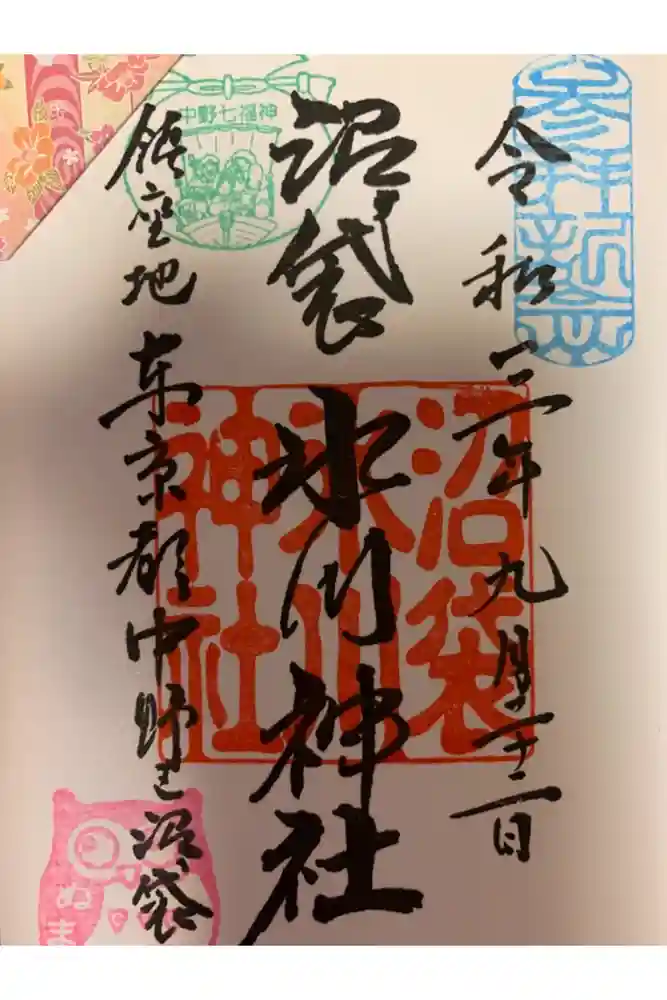 参拝
令和三年九月二十二日
沼袋 氷川神社
沼袋
氷川
神社
中野七福神
鎮座地 東京都中野区沼袋
ぬま